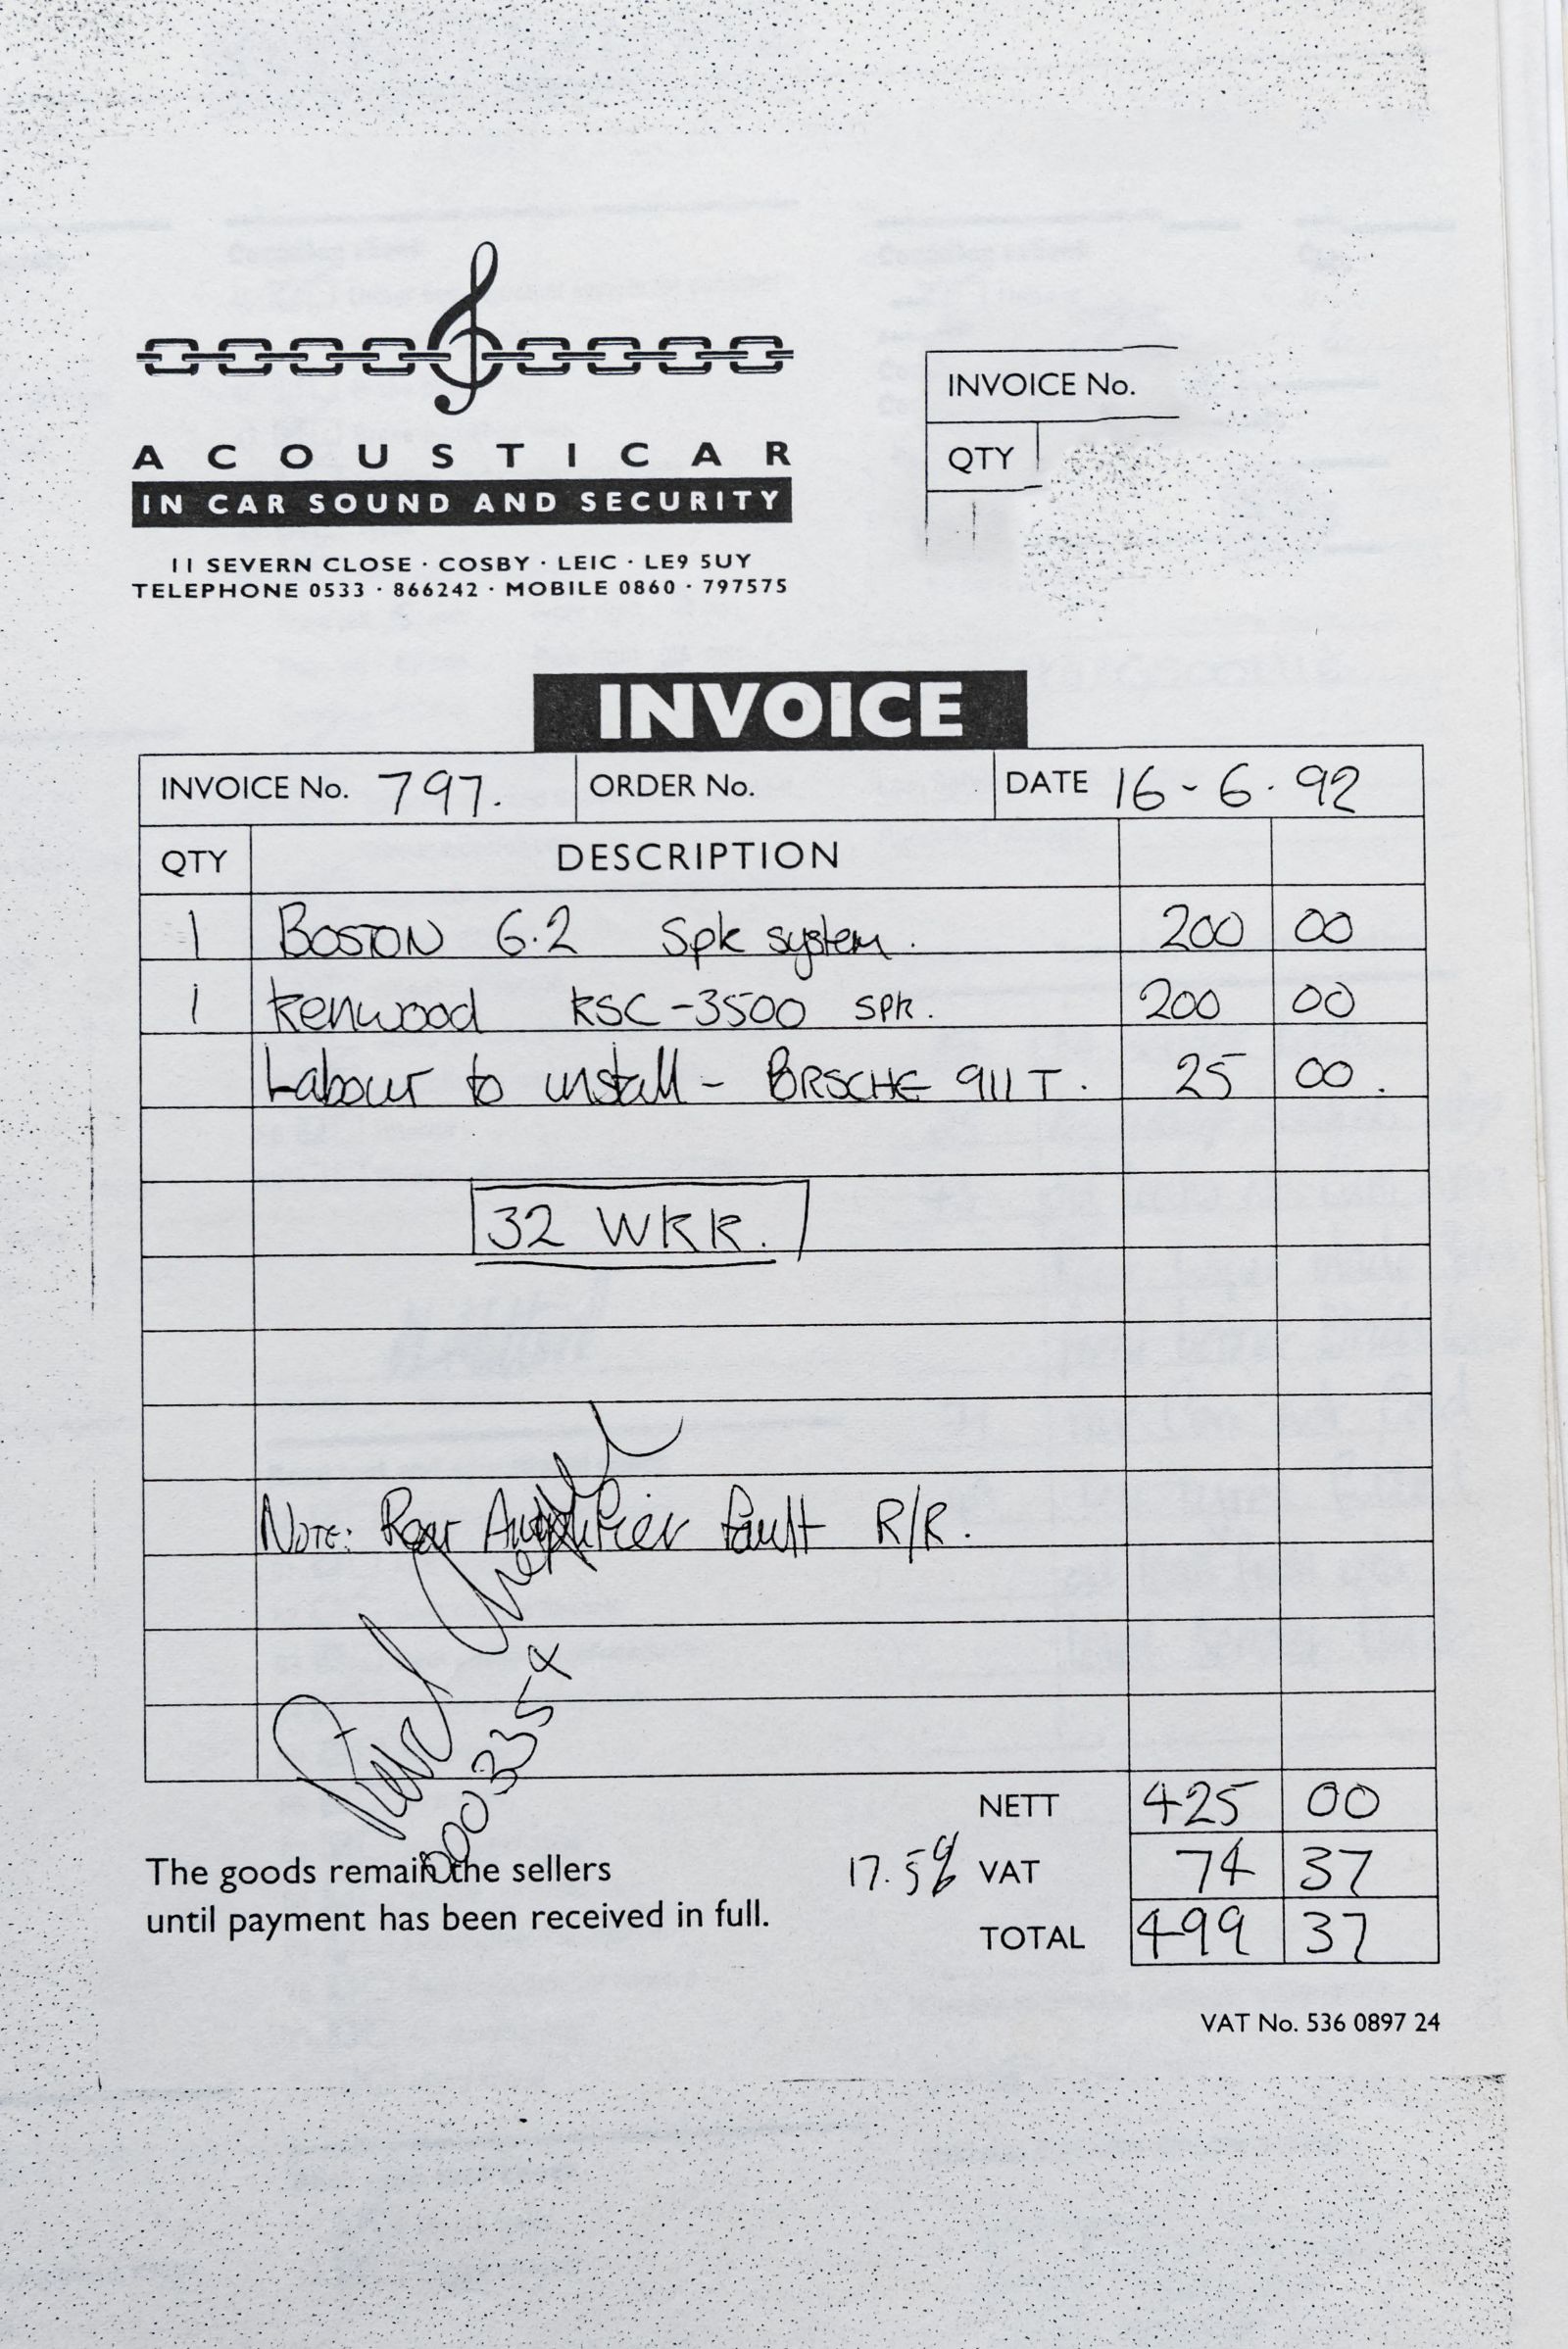 INVOICE No.
QTY
ACOUSTICAR
IN CAR SOUND AND SECURITY
11 SEVERN CLOSE · COSBY · LEIC · LE9 5UY
TELEPHONE 0533 · 866242 · MOBILE 0860 · 797575
INVOICE
INVOICE No. 797. ORDER No. DATE 16-6.92
QTY DESCRIPTION
1 BOSTON 6.2 Spk system. 200 00
1 Kenwood KSC-3500 SPK. 200 00
Labour to install - PORSCHE 911 T. 25 00.
32 WKK.
NOTE: Rear Amplifier fault R/R.
NETT 425 00
The goods remain the sellers
until payment has been received in full.
17.5% VAT 74 37
TOTAL 499 37
VAT No. 536 0897 24